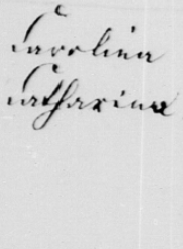 Carolina
Catharina